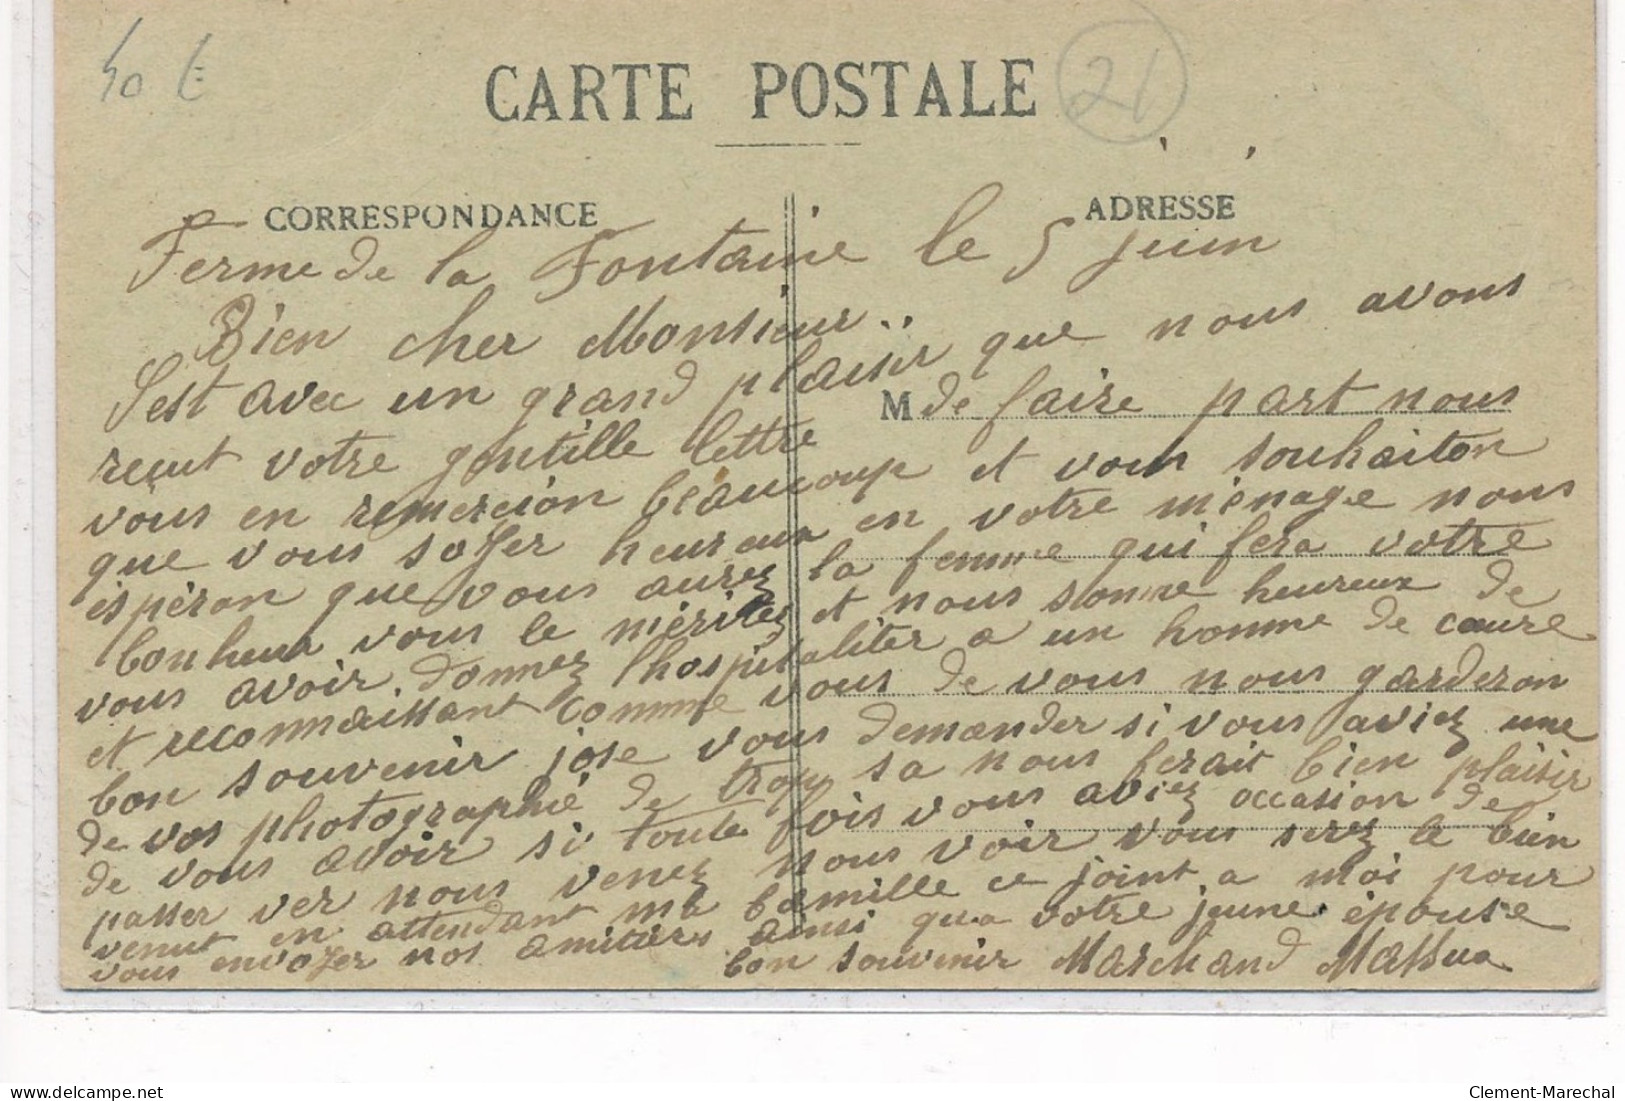 40 €
CARTE POSTALE
21
CORRESPONDANCE
ADRESSE
Ferme de la Fontaine le 5 juin
Bien cher Monsieur..
S'est avec un grand plaisir que nous avons
recut votre gentille lettre M de faire part nous
vous en remercion beaucoup et vous souhaiton
que vous soyer heureux en votre ménage nous
ésperon que vous aurez la femme qui fera votre
bonheur vous le méritez et nous somme heureux de
vous avoir donnez lhospitaliter a un homme de cœure
et reconnaissant comme vous de vous nous garderon
bon souvenir jose vous demander si vous aviez une
de vos photographié de trop sa nous ferait bien plaisir
de vous avoir si toute fois vous aviez occasion de
passer ver nous venez nous voir vous serez le bien
venut en attendant ma famille ce joint a moi pour
vous envoyer nos amitiérs ainsi qu'a votre jeune épouse
bon souvenir Marchand
delcampe.net
Clement-Marechal